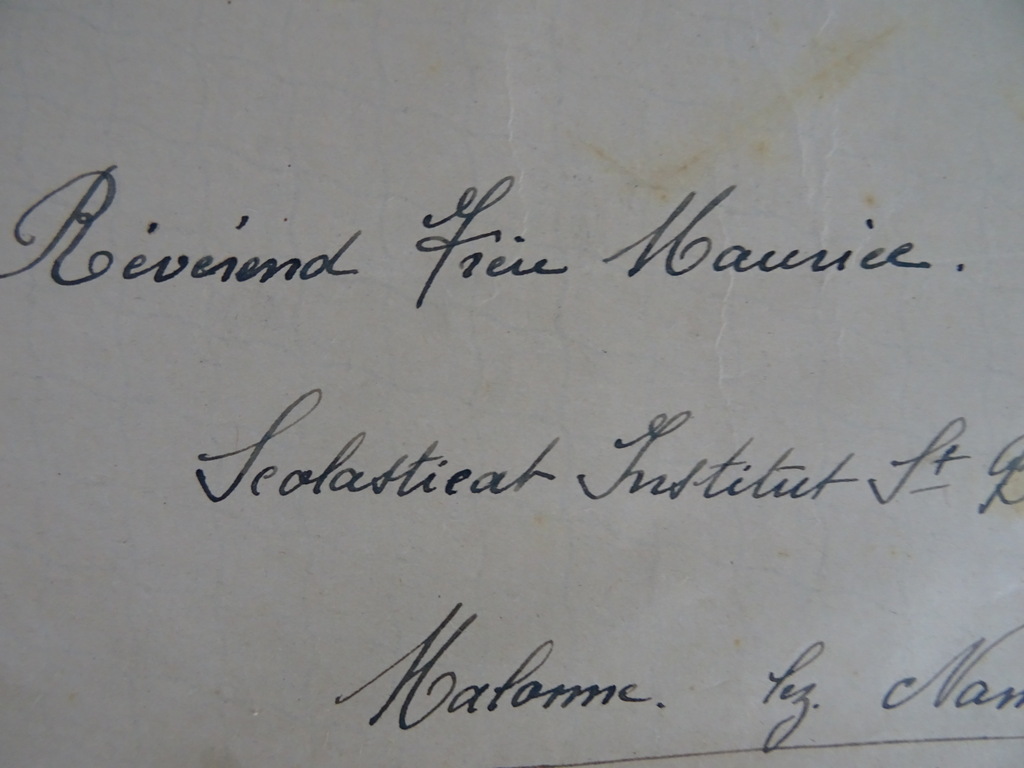 Révérend Frère Maurice.
Scolasticat Institut St
Malonne. lez. Nam